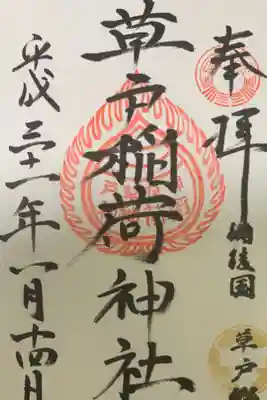 奉拝
備後国
草戸
草戸稲荷神社
平成三十一年一月十四日